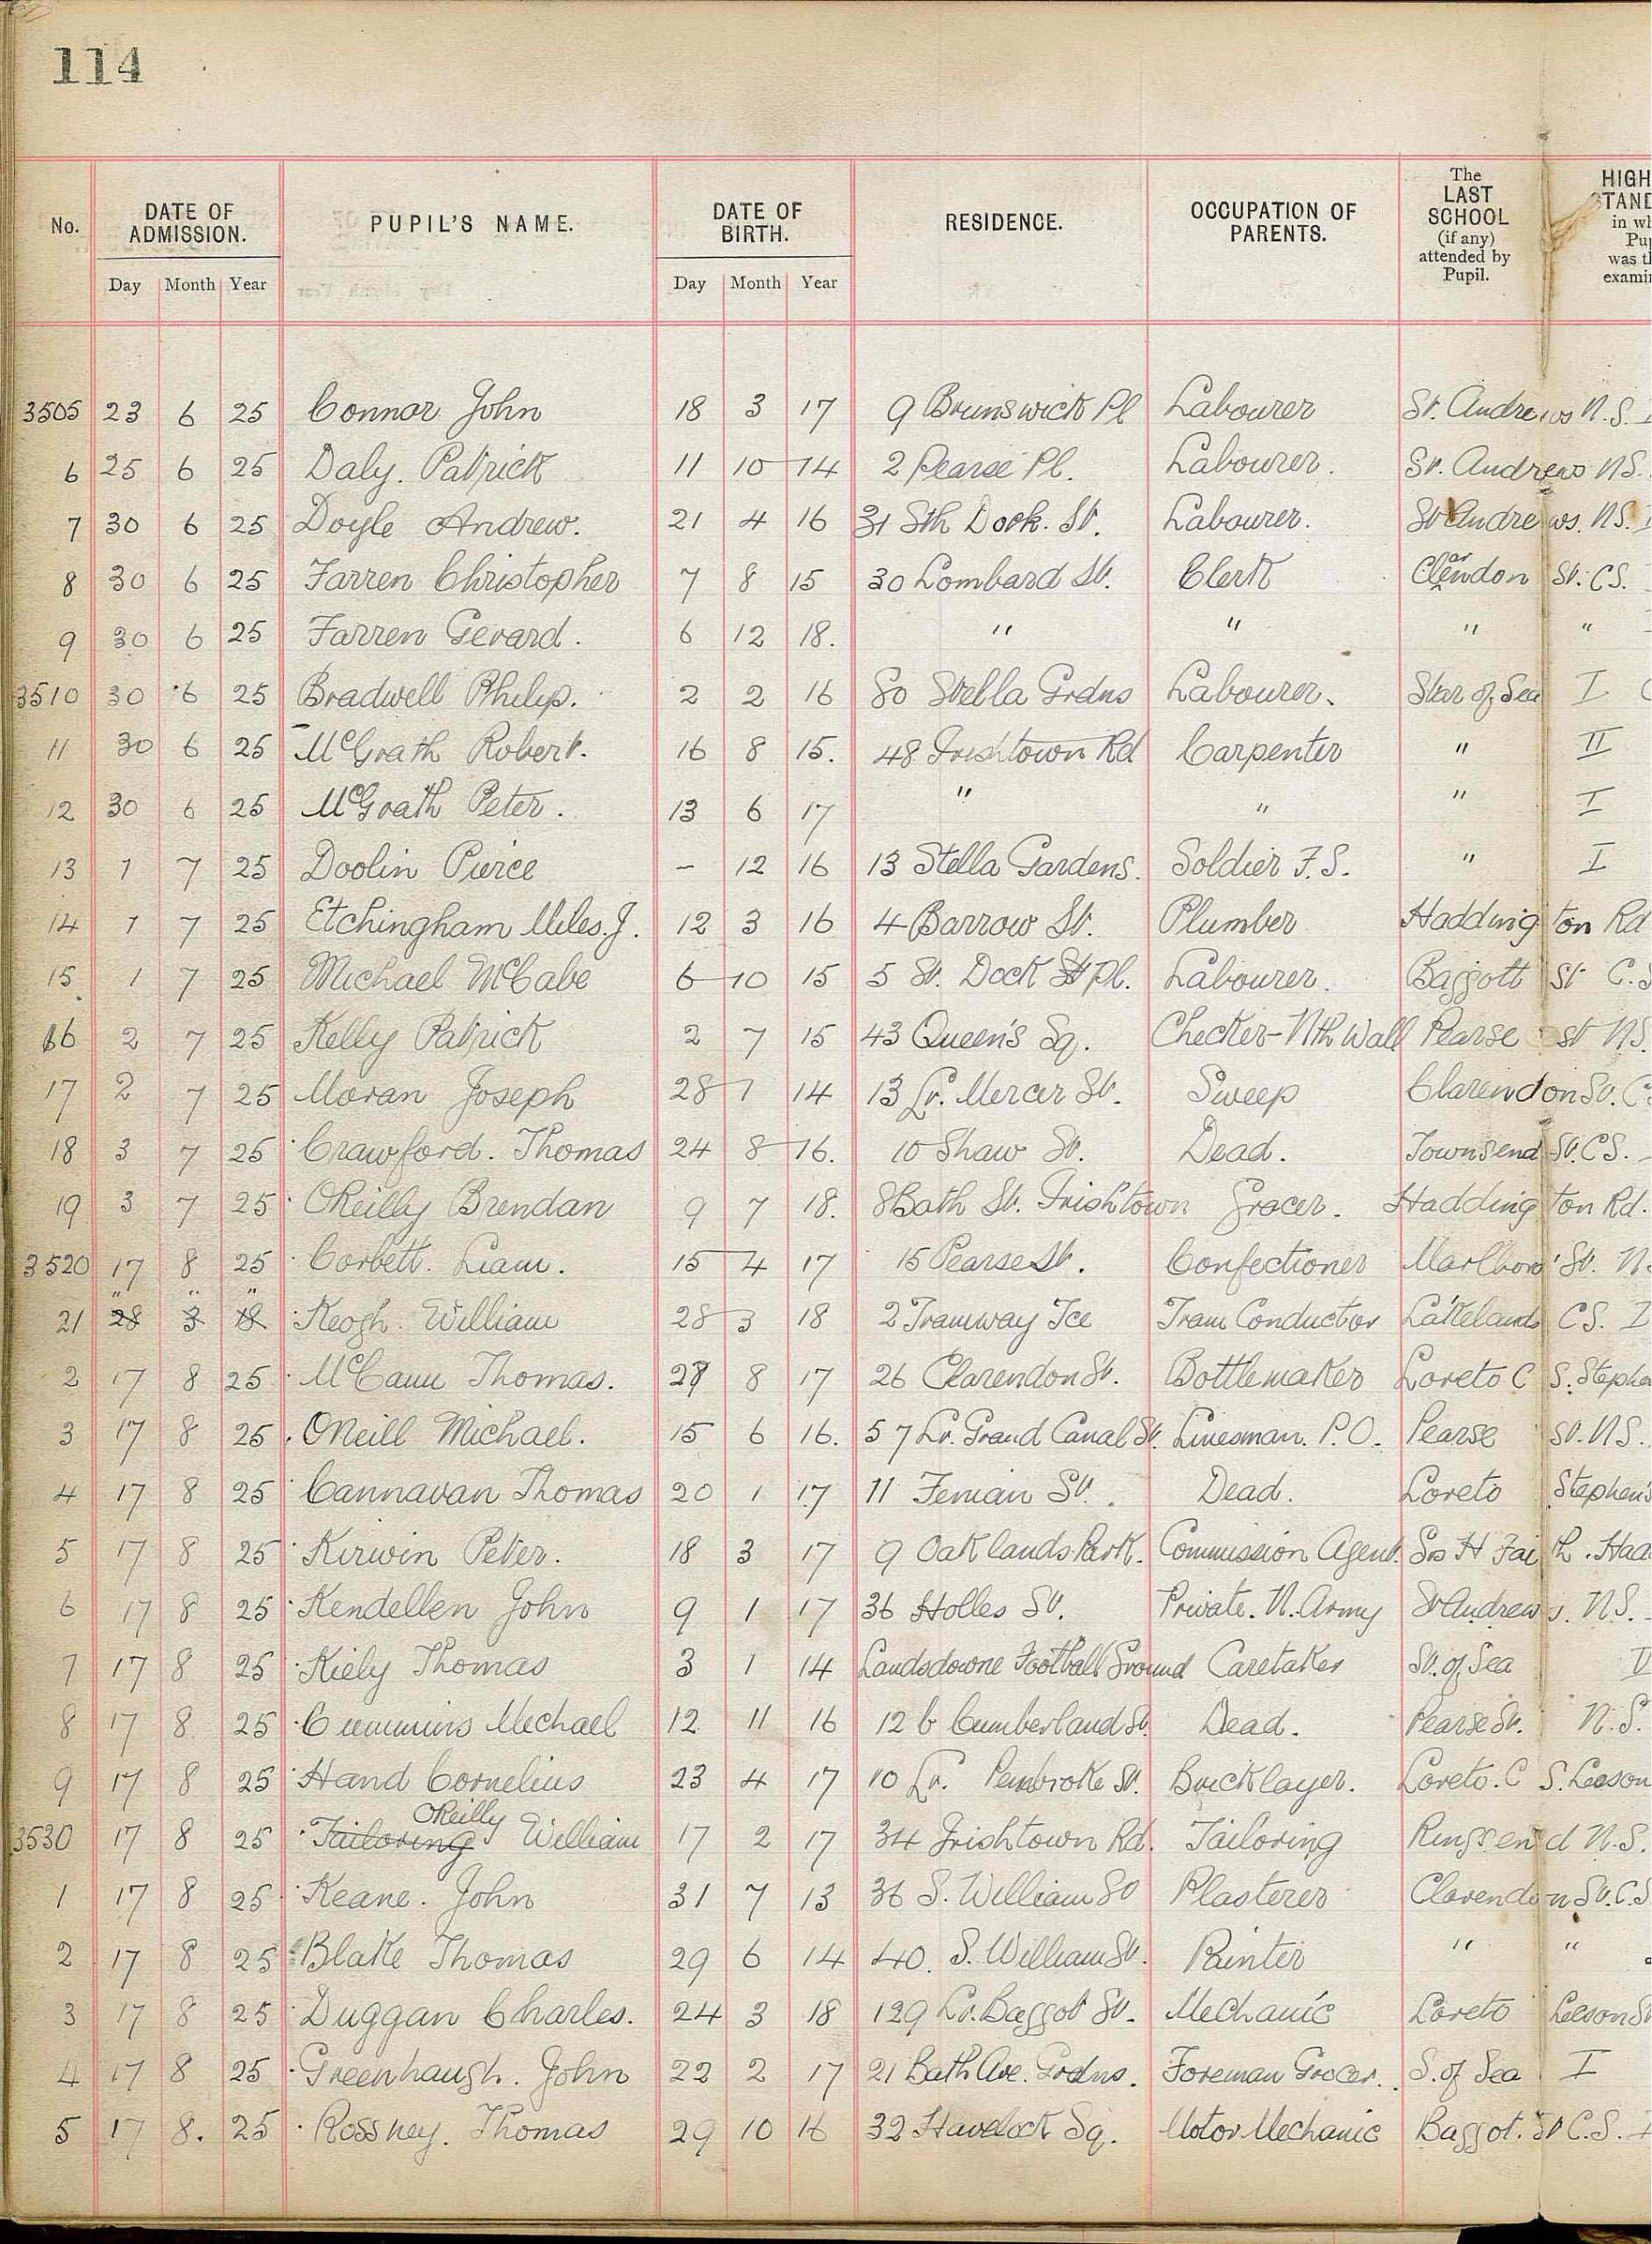 114
No. DATE OF ADMISSION. PUPIL'S NAME. DATE OF BIRTH. RESIDENCE. OCCUPATION OF PARENTS. The LAST SCHOOL (if any) attended by Pupil. HIGH STAND in wh Pup was th exami
Day Month Year Day Month Year
3505 23 6 25 Connor John 18 3 17 9 Brunswick Pl Labourer St. Andrews N.S.
6 25 6 25 Daly. Patrick 11 10 14 2 Pearse Pl. Labourer. St. Andrews NS.
7 30 6 25 Doyle Andrew. 21 4 16 31 Sth Dock. St. Labourer. St Andrews. NS.
8 30 6 25 Farren Christopher 7 8 15 30 Lombard St. Clerk Clarendon St. CS.
9 30 6 25 Farren Gerard. 6 12 18. " " " "
3510 30 6 25 Bradwell Philip. 2 2 16 80 Stella Grdns Labourer. Star of Sea I
11 30 6 25 McGrath Robert. 16 8 15. 48 Irishtown Rd Carpenter " II
12 30 6 25 McGrath Peter. 13 6 17 " " " I
13 1 7 25 Doolin Pierce - 12 16 13 Stella Gardens. Soldier F.S. " I
14 1 7 25 Etchingham Miles. J. 12 3 16 4 Barrow St. Plumber Haddington Rd
15 1 7 25 Michael McCabe 6 10 15 5 St. Dock St Pl. Labourer. Baggott St C.S
16 2 7 25 Kelly Patrick 2 7 15 43 Queen's Sq. Checker-Nth Wall Pearse St NS.
17 2 7 25 Moran Joseph 28 1 14 13 Lr. Mercer St. Sweep Clarendon St. C
18 3 7 25 Crawford. Thomas 24 8 16. 10 Shaw St. Dead. Townsend St. CS.
19 3 7 25 OReilly Brendan 9 7 18. 8 Bath St. Irishtown Grocer. Haddington Rd.
3520 17 8 25 Corbett. Liam. 15 4 17 15 Pearse St. Confectioner Marlboro' St. N.
" " "
21 28 3 18 Keogh. William 28 3 18 2 Tramway Tce Tram Conductor Lakelands CS. I
2 17 8 25 McCann Thomas. 28 8 17 26 Clarendon St. Bottlemaker Loreto C S. Stephe
3 17 8 25 ONeill Michael. 15 6 16. 57 Lr. Grand Canal St. Linesman. P.O. Pearse St. NS.
4 17 8 25 Cannavan Thomas 20 1 17 11 Fenian St. Dead. Loreto Stephen's
5 17 8 25 Kirwin Peter. 18 3 17 9 Oaklands Park. Commission Agent. Srs H Faith. Had
6 17 8 25 Kendellen John 9 1 17 36 Holles St. Private. N. Army St Andrews. N.S.
7 17 8 25 Kiely Thomas 3 1 14 Landsdowne Football Ground Caretaker St. of Sea
8 17 8 25 Cummins Michael 12 11 16 12 b Cumberland St. Dead. Pearse St. N.S.
9 17 8 25 Hand Cornelius 23 4 17 10 Lr. Pembroke St. Bricklayer. Loreto. C S. Leeson
OReilly
3530 17 8 25 Tailoring William 17 2 17 34 Irishtown Rd. Tailoring Ringsend N.S.
1 17 8 25 Keane. John 31 7 13 36 S. William St Plasterer Clarendon St. C.S
2 17 8 25 Blake Thomas 29 6 14 40. S. William St. Painter " "
3 17 8 25 Duggan Charles. 24 3 18 129 Lr. Baggot St. Mechanic Loreto Leeson St
4 17 8 25 Greenhaugh. John 22 2 17 21 Bath Ave. Grdns. Foreman Grocer. S. of Sea I
5 17 8. 25 Rossney. Thomas 29 10 16 32 Havelock Sq. Motor Mechanic Baggot. St C.S.